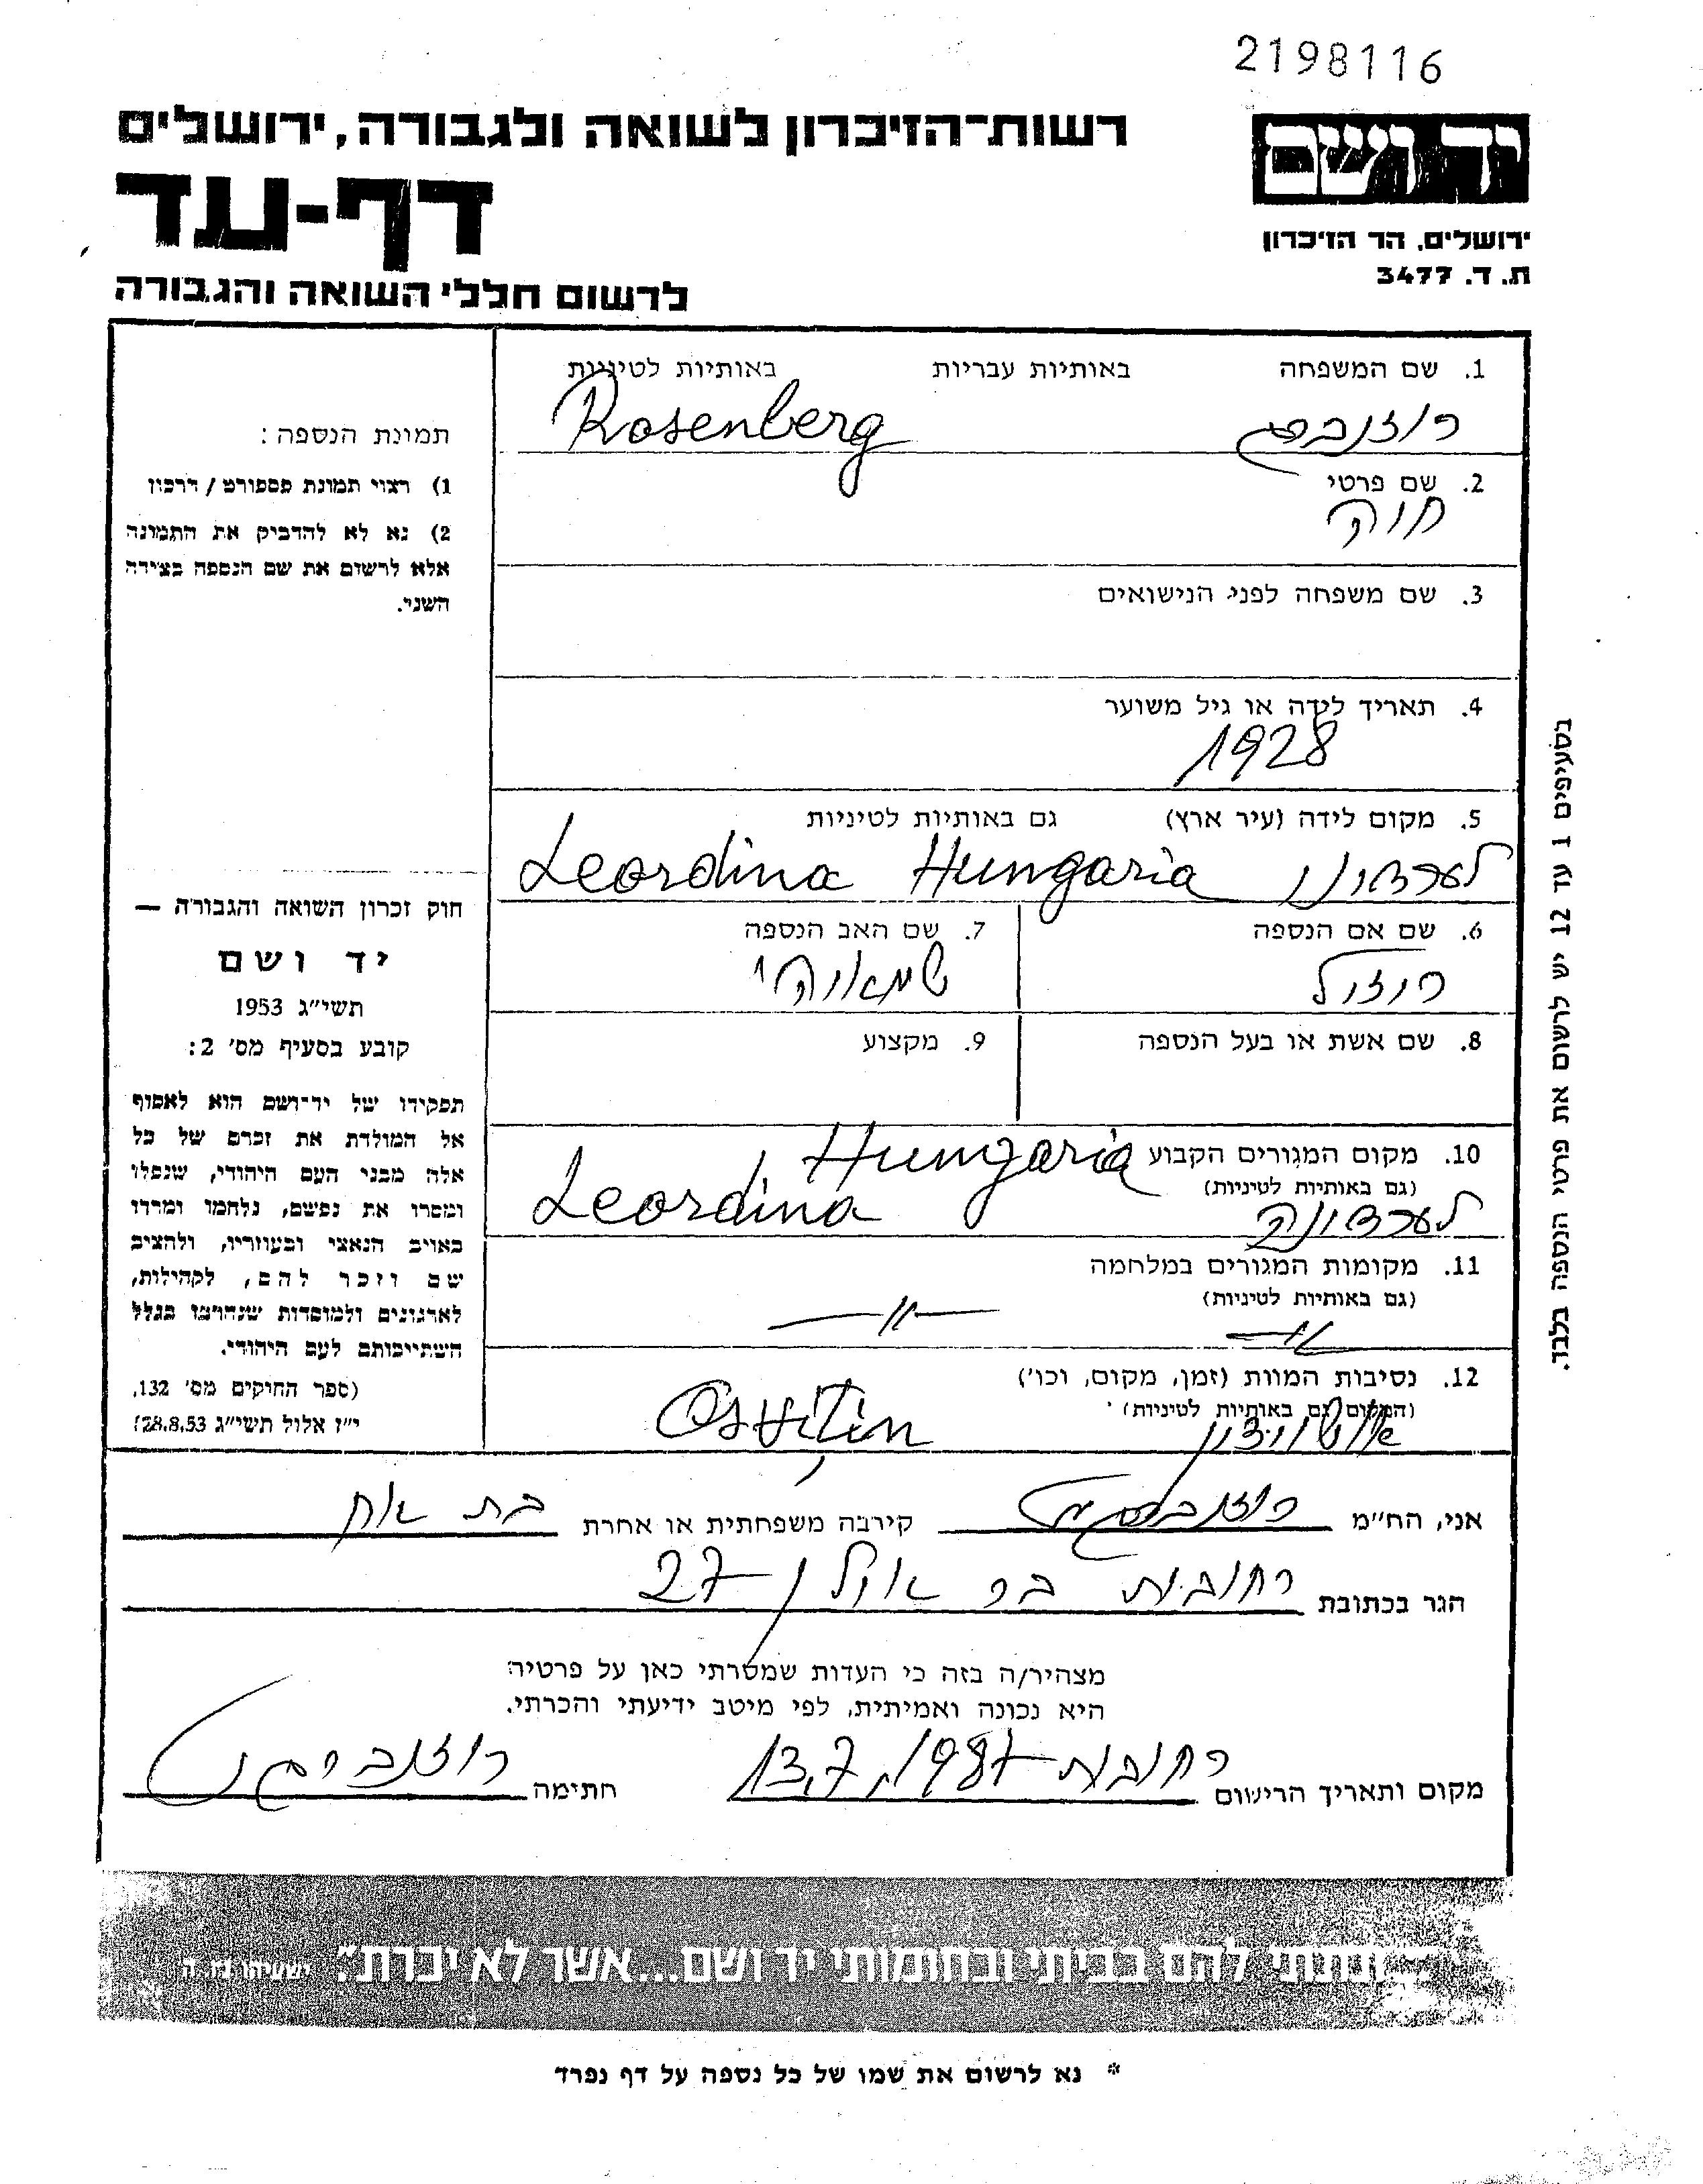 2198116
יד ושם
רשות־הזיכרון לשואה ולגבורה, ירושלים
דף-עד
ירושלים, הר הזיכרון
ת. ד. 3477
לרשום חללי השואה והגבורה
1. שם המשפחה באותיות עבריות באותיות לטיניות
רוזנברג Rosenberg
2. שם פרטי
חוה
3. שם משפחה לפני הנישואים
4. תאריך לידה או גיל משוער
1928
5. מקום לידה (עיר ארץ) גם באותיות לטיניות
Leordina Hungaria
6. שם אם הנספה
רוזול
7. שם האב הנספה
8. שם אשת או בעל הנספה
9. מקצוע
10. מקום המגורים הקבוע Hungaria
(גם באותיות לטיניות)
לערדינה Leordina
11. מקומות המגורים במלחמה
(גם באותיות לטיניות)
— " —
12. נסיבות המוות (זמן, מקום, וכו')
(המקום גם באותיות לטיניות)
תמונת הנספה:
1) רצוי תמונת פספורט / דרכון
2) נא לא להדביק את התמונה
אלא לרשום את שם הנספה בצידה
השני.
חוק זכרון השואה והגבורה —
יד ושם
תשי"ג 1953
קובע בסעיף מס' 2:
תפקידו של יד־ושם הוא לאסוף
אל המולדת את זכרם של כל
אלה מבני העם היהודי, שנפלו
ומסרו את נפשם, נלחמו ומרדו
באויב הנאצי ובעוזריו, ולהציב
שם וזכר להם, לקהילות,
לארגונים ולמוסדות שנחרבו בגלל
השתייכותם לעם היהודי.
(ספר החוקים מס' 132,
י"ז אלול תשי"ג 28.8.53)
בסעיפים 1 עד 12 יש לרשום את פרטי הנספה בלבד.
אני, הח"מ קירבה משפחתית או אחרת בת אח
הגר בכתובת רחובות בר אילן 27
מצהיר/ה בזה כי העדות שמסרתי כאן על פרטיה
היא נכונה ואמיתית, לפי מיטב ידיעתי והכרתי.
מקום ותאריך הרישום רחובות 13.7.1987 חתימה
ונתתי להם בביתי ובחומותי יד ושם...אשר לא יכרת". ישעיהו נו, ה
* נא לרשום את שמו של כל נספה על דף נפרד